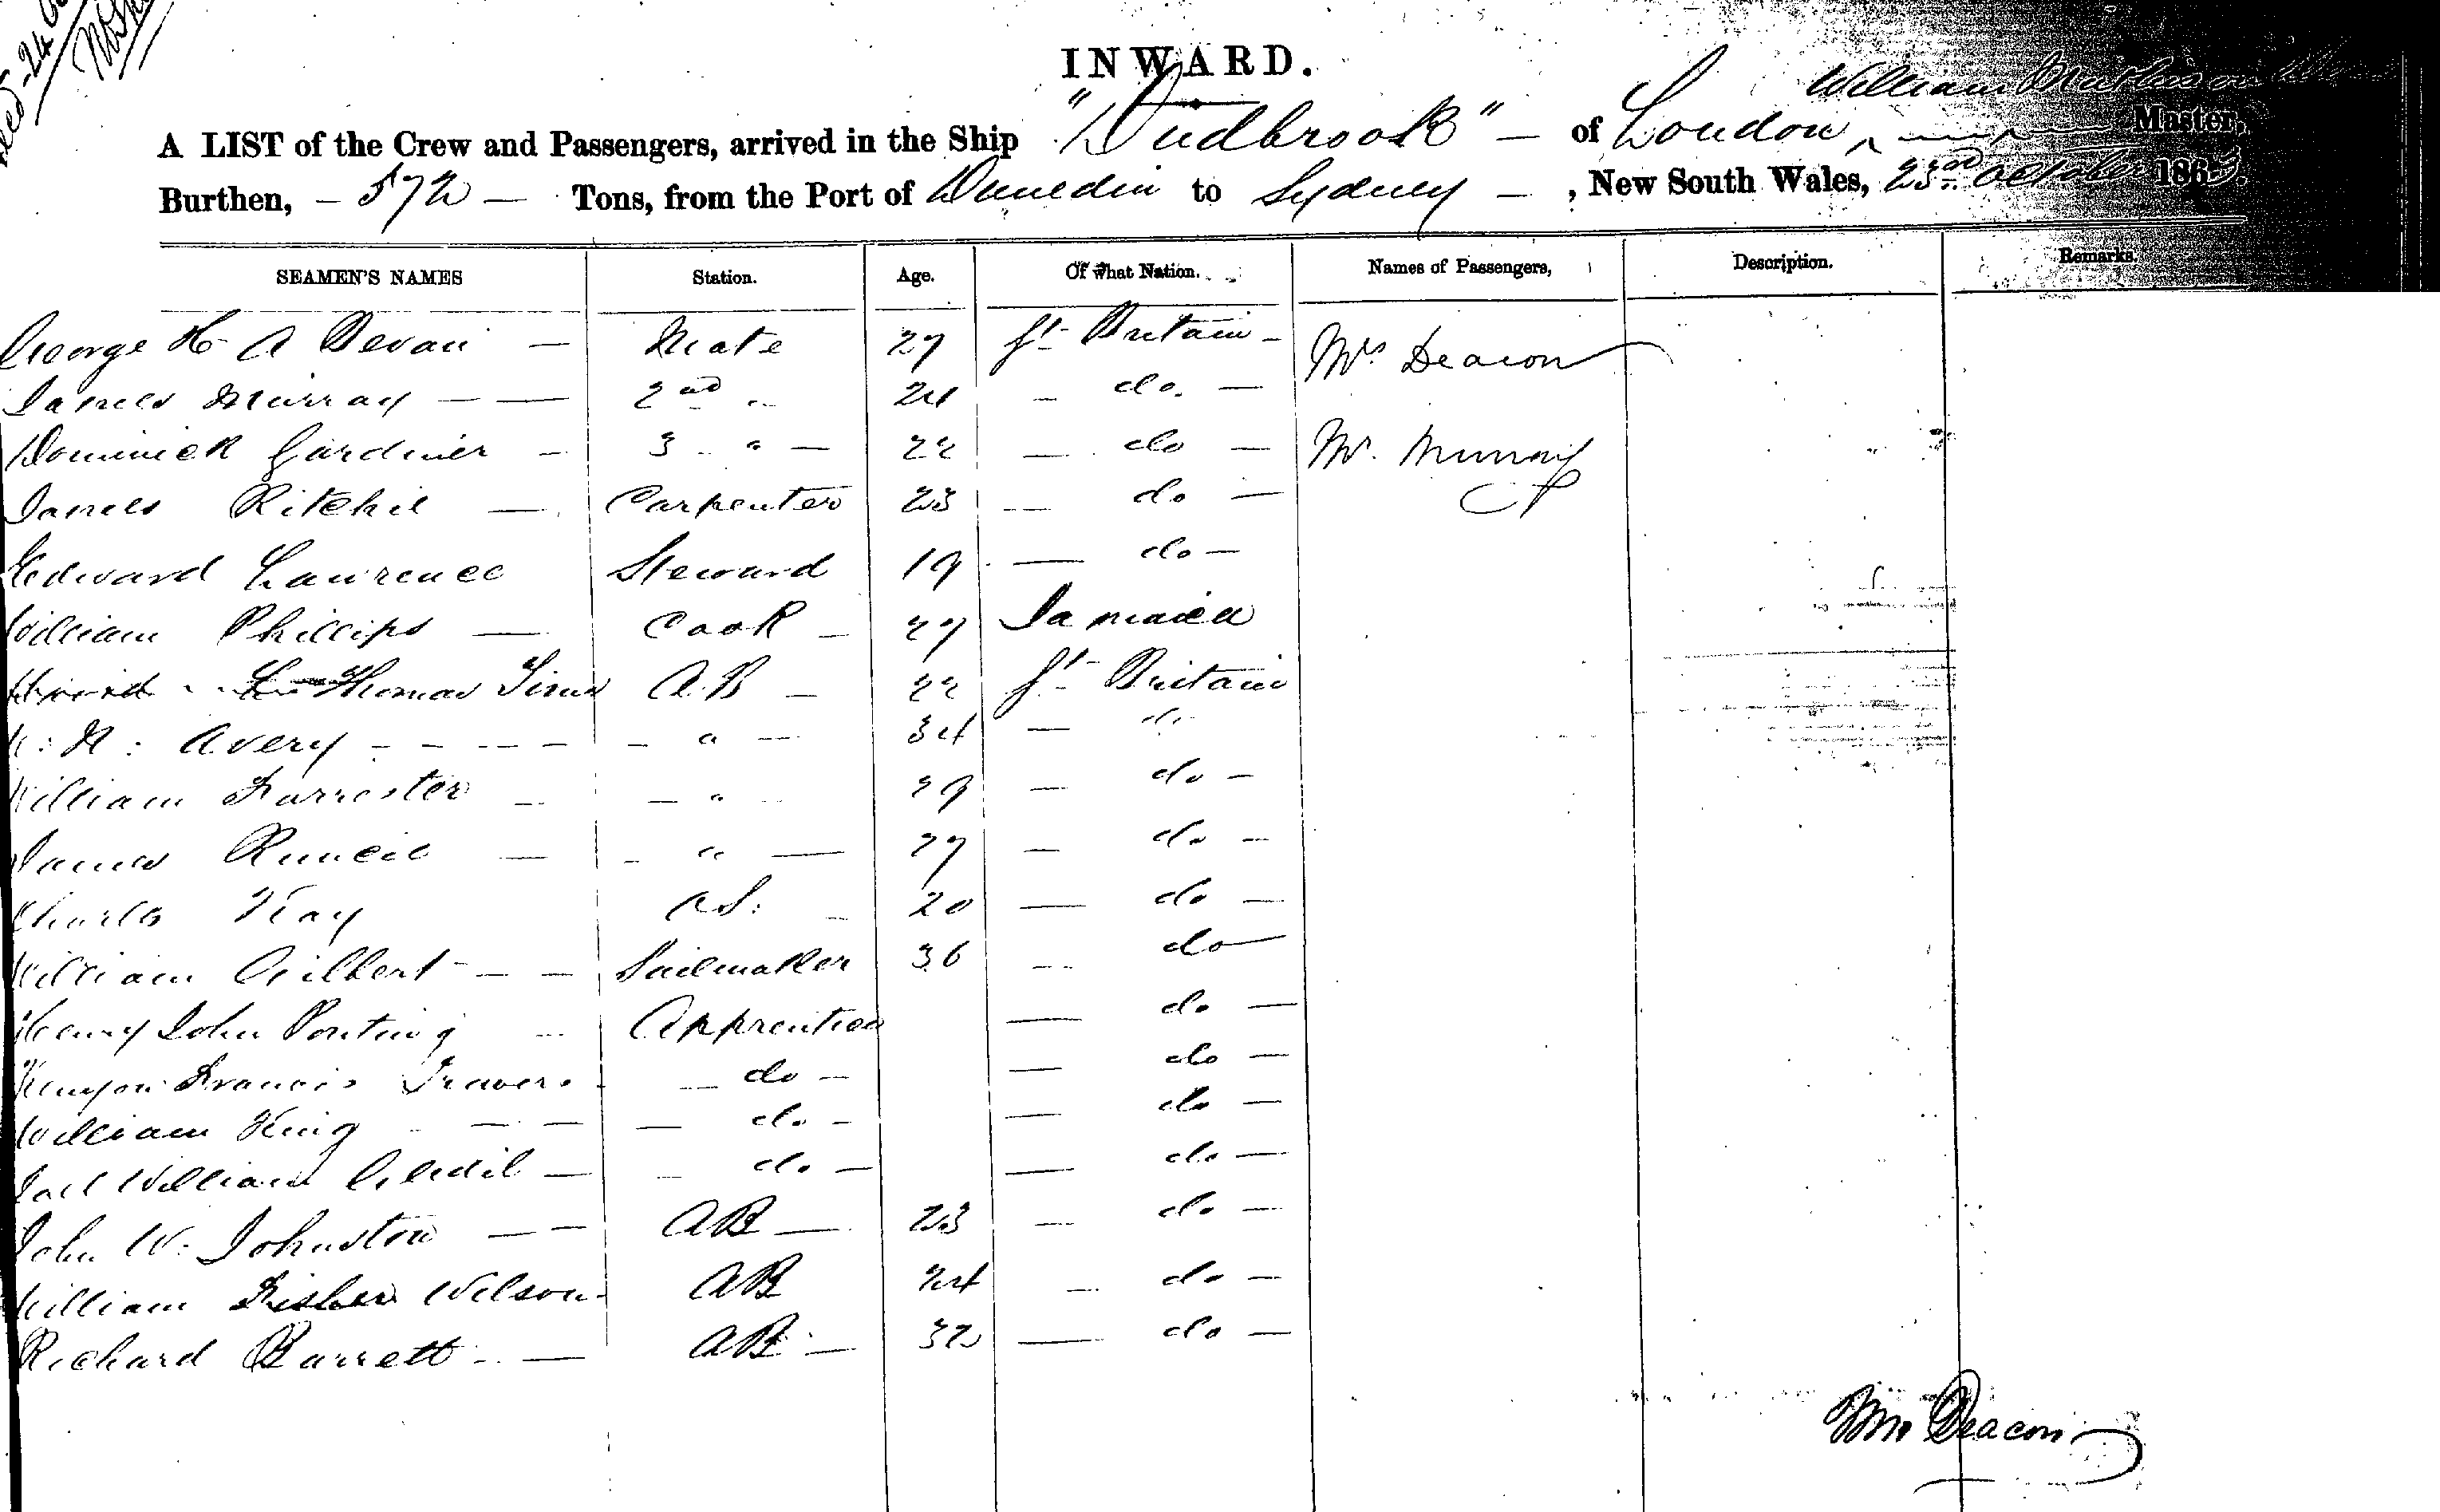 INWARD.
A LIST of the Crew and Passengers, arrived in the Ship "Dudbrook" — of London, William Master,
Burthen, — 572 — Tons, from the Port of Dunedin to Sydney — , New South Wales, 23rd October 1863.
SEAMEN'S NAMES Station. Age. Of what Nation. Names of Passengers, Description. Remarks.
George H A — Mate 27 Gt Britain — Mrs Deacon
James Murray — — 2nd " 24 — do. —
Dominick Gardiner — 3 " — 22 — do — Mr. Murray
James Ritchie — Carpenter 23 — do —
Edward Lawrence Steward 19 — do —
William Phillips — Cook — 27 Jamaica
Thomas A.B — 22 Gt Britain
Avery — — — — — " — 34 — do
William Forrester — — " 29 — do —
James Runcie — — " — 27 — do —
Charles Kay 20 — do —
William Gilbert — — Sailmaker 36 — do —
Henry John Ponting — Apprentice — do —
Kenyon Francis Travers — do — — do —
William King — — — do — — do —
William — — do — — do —
John W. Johnston — — AB — 23 — do —
William Fisher Wilson — AB 24 — do —
Richard Barrett — AB — 32 — do —
Wm Deacon